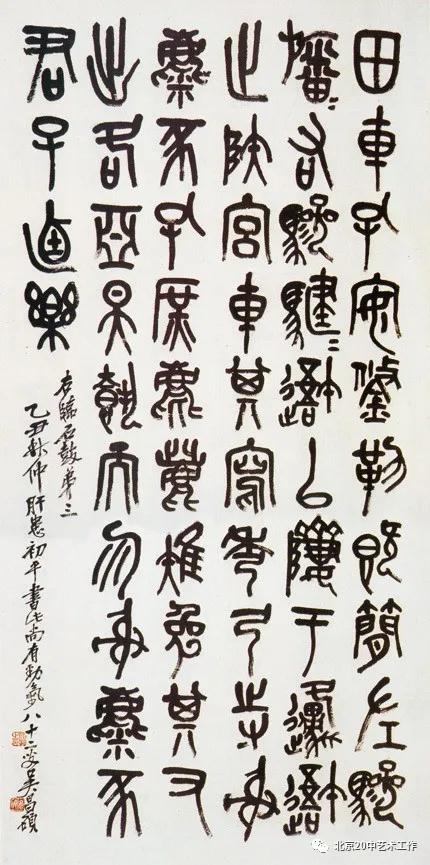 田車孔安鋚勒既簡左驂
旛=右驂騝=䢒以隮于邍䢒
止陝宮車其寫秀弓寺射
麋豕孔庶麀鹿雉兔其又
出各亞昊執而勿射麋豕
君子迺樂
右臨石鼓第三
乙丑秋仲肝恙初平書此尚有勁氣八十二叟吳昌碩
北京20中艺术工作